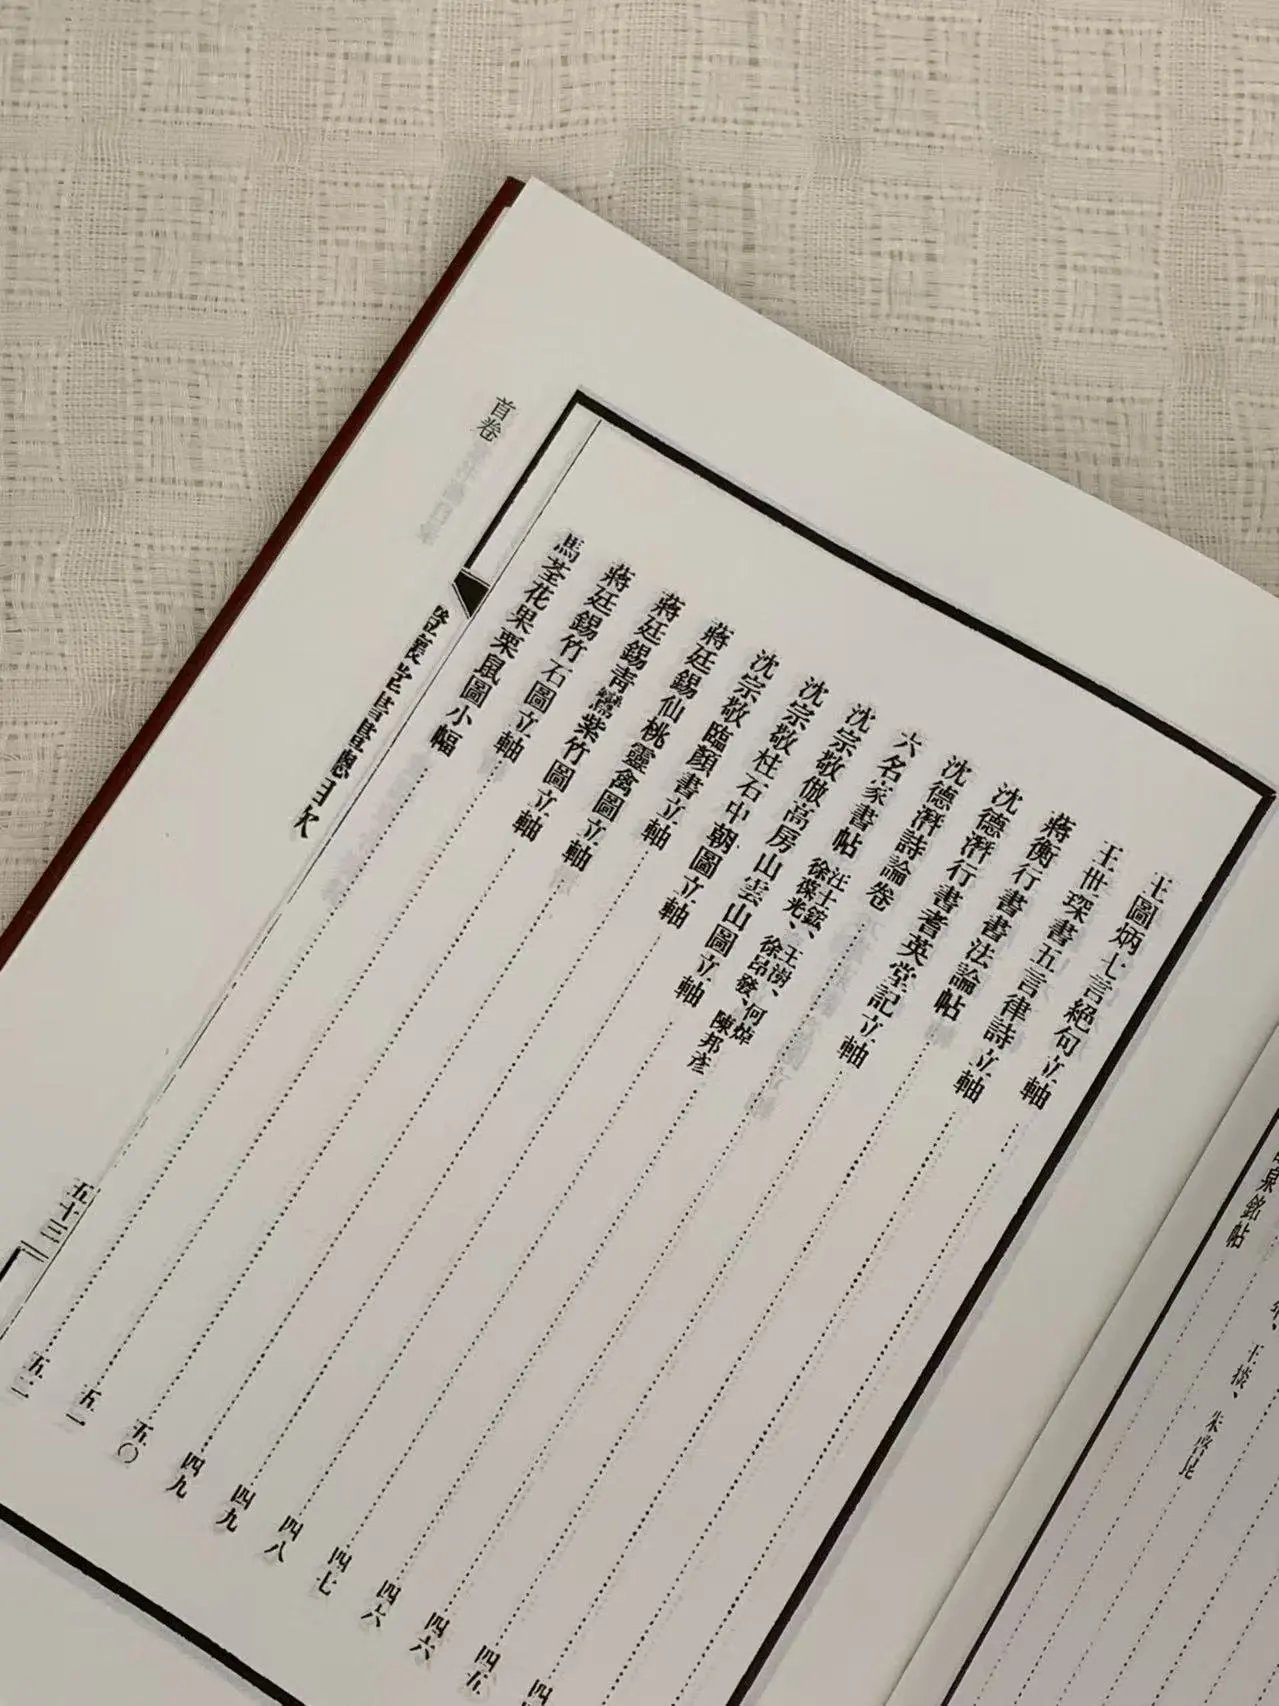 王圖炳七言絕句立軸
王世琛書五言律詩立軸
蔣衡行書書法論帖
沈德潛行書耆英堂記立軸 四五
沈德潛詩論卷 四六
六名家書帖 汪士鋐、王澍、何焯 徐葆光、徐昂發、陳邦彥 四六
沈宗敬倣高房山雲山圖立軸 四七
沈宗敬柱石中朝圖立軸 四八
沈宗敬臨顏書立軸 四九
蔣廷錫仙桃靈禽圖立軸 四九
蔣廷錫青鸞紫竹圖立軸 五〇
蔣廷錫竹石圖立軸 五一
馬荃花果栗鼠圖小幅 五二
五十三
首卷
泉銘帖
王掞、朱